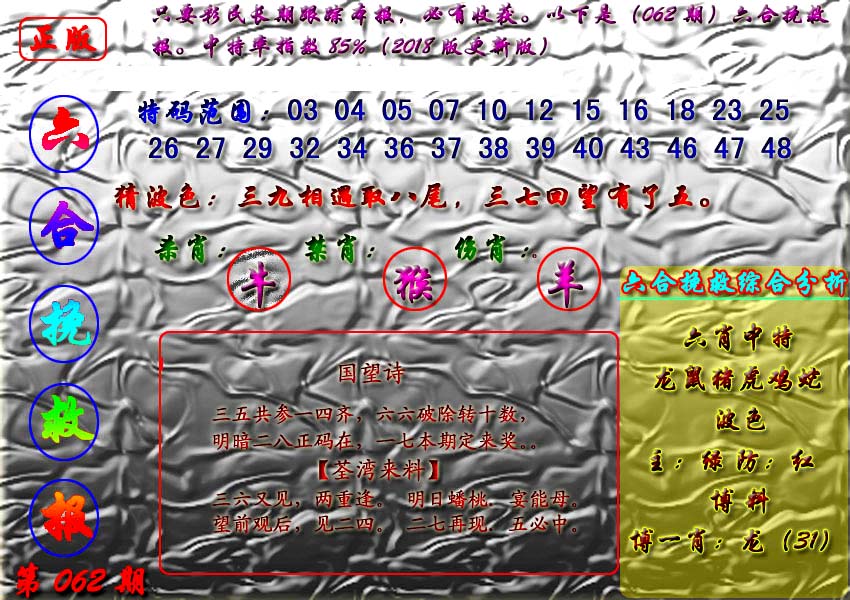 正版
只要彩民长期跟踪本报，必有收获。以下是（062期）六合挽救
报。中特率指数85%（2018版更新版）
六合挽救报
第062期
特码范围：03 04 05 07 10 12 15 16 18 23 25
26 27 29 32 34 36 37 38 39 40 43 46 47 48
猜波色：三九相遇取八尾，三七回望有了五。
杀肖：牛 禁肖：猴 伤肖：。羊
国望诗
三五共参一四齐，六六破除转十数，
明暗二八正码在，一七本期定来奖。。
【荃湾来料】
三六又见，两重逢。 明日蟠桃．宴能母。
望前观后，见二四。 二七再现．五必中。
六合挽救综合分析
六肖中特
龙鼠猪虎鸡蛇
波色
主：绿防：红
博料
博一肖：龙（31）